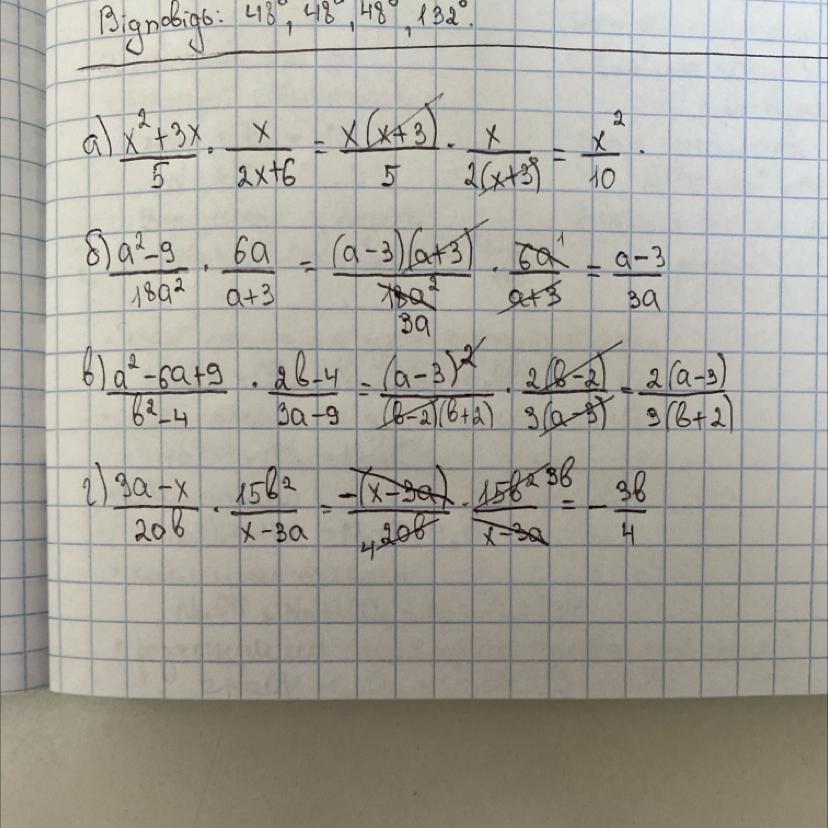 Відповідь: 48°, 48°, 48°, 132°.
а) (x²+3x)/5 · x/(2x+6) = x(x+3)/5 · x/(2(x+3)) = x²/10.
б) (a²-9)/(18a²) · 6a/(a+3) = (a-3)(a+3)/(18a²) 3a · 6a¹/(a+3) = (a-3)/(3a)
в) (a²-6a+9)/(b²-4) · (2b-4)/(3a-9) = (a-3)²/((b-2)(b+2)) · 2(b-2)/(3(a-3)) = 2(a-3)/(3(b+2))
г) (3a-x)/(20b) · 15b²/(x-3a) = -(x-3a)/(4 20b) · 15b² 3b/(x-3a) = -3b/4